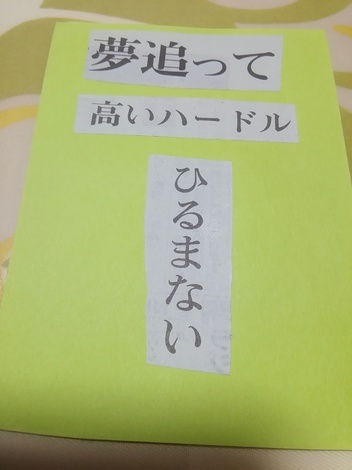 夢追って
高いハードル
ひるまない